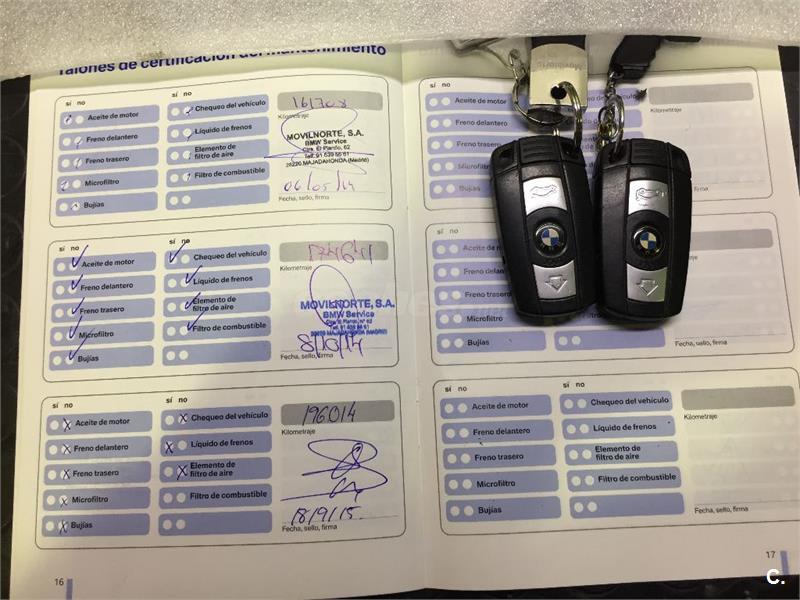 Talones de certificación del mantenimiento
sí no
Aceite de motor
Freno delantero
Freno trasero
Microfiltro
Bujías
sí no
Chequeo del vehículo
Líquido de frenos
Elemento de
filtro de aire
Filtro de combustible
Kilometraje
MOVILNORTE, S.A.
BMW Service
Ctra. El Plantío, 62
28220 MAJADAHONDA (Madrid)
06/05/14
Fecha, sello, firma
sí no
Aceite de motor
Freno delantero
Freno trasero
Microfiltro
Bujías
sí no
Chequeo del vehículo
Líquido de frenos
Elemento de
filtro de aire
Filtro de combustible
Kilometraje
MOVILNORTE, S.A.
BMW Service
8/10/14
Fecha, sello, firma
sí no
Aceite de motor
Freno delantero
Freno trasero
Microfiltro
Bujías
sí no
Chequeo del vehículo
Líquido de frenos
Elemento de
filtro de aire
Filtro de combustible
196014
Kilometraje
18/9/15.
Fecha, sello, firma
16
sí no
Aceite de motor
Freno delantero
Freno trasero
Microfiltro
Bujías
Kilometraje
sello, firma
sí no
Aceite de
Freno delan
Freno trasero
Microfiltro
Bujías
Fecha, sello, firma
sí no
Aceite de motor
Freno delantero
Freno trasero
Microfiltro
Bujías
sí no
Chequeo del vehículo
Líquido de frenos
Elemento de
filtro de aire
Filtro de combustible
Kilometraje
Fecha, sello, firma
17
C.